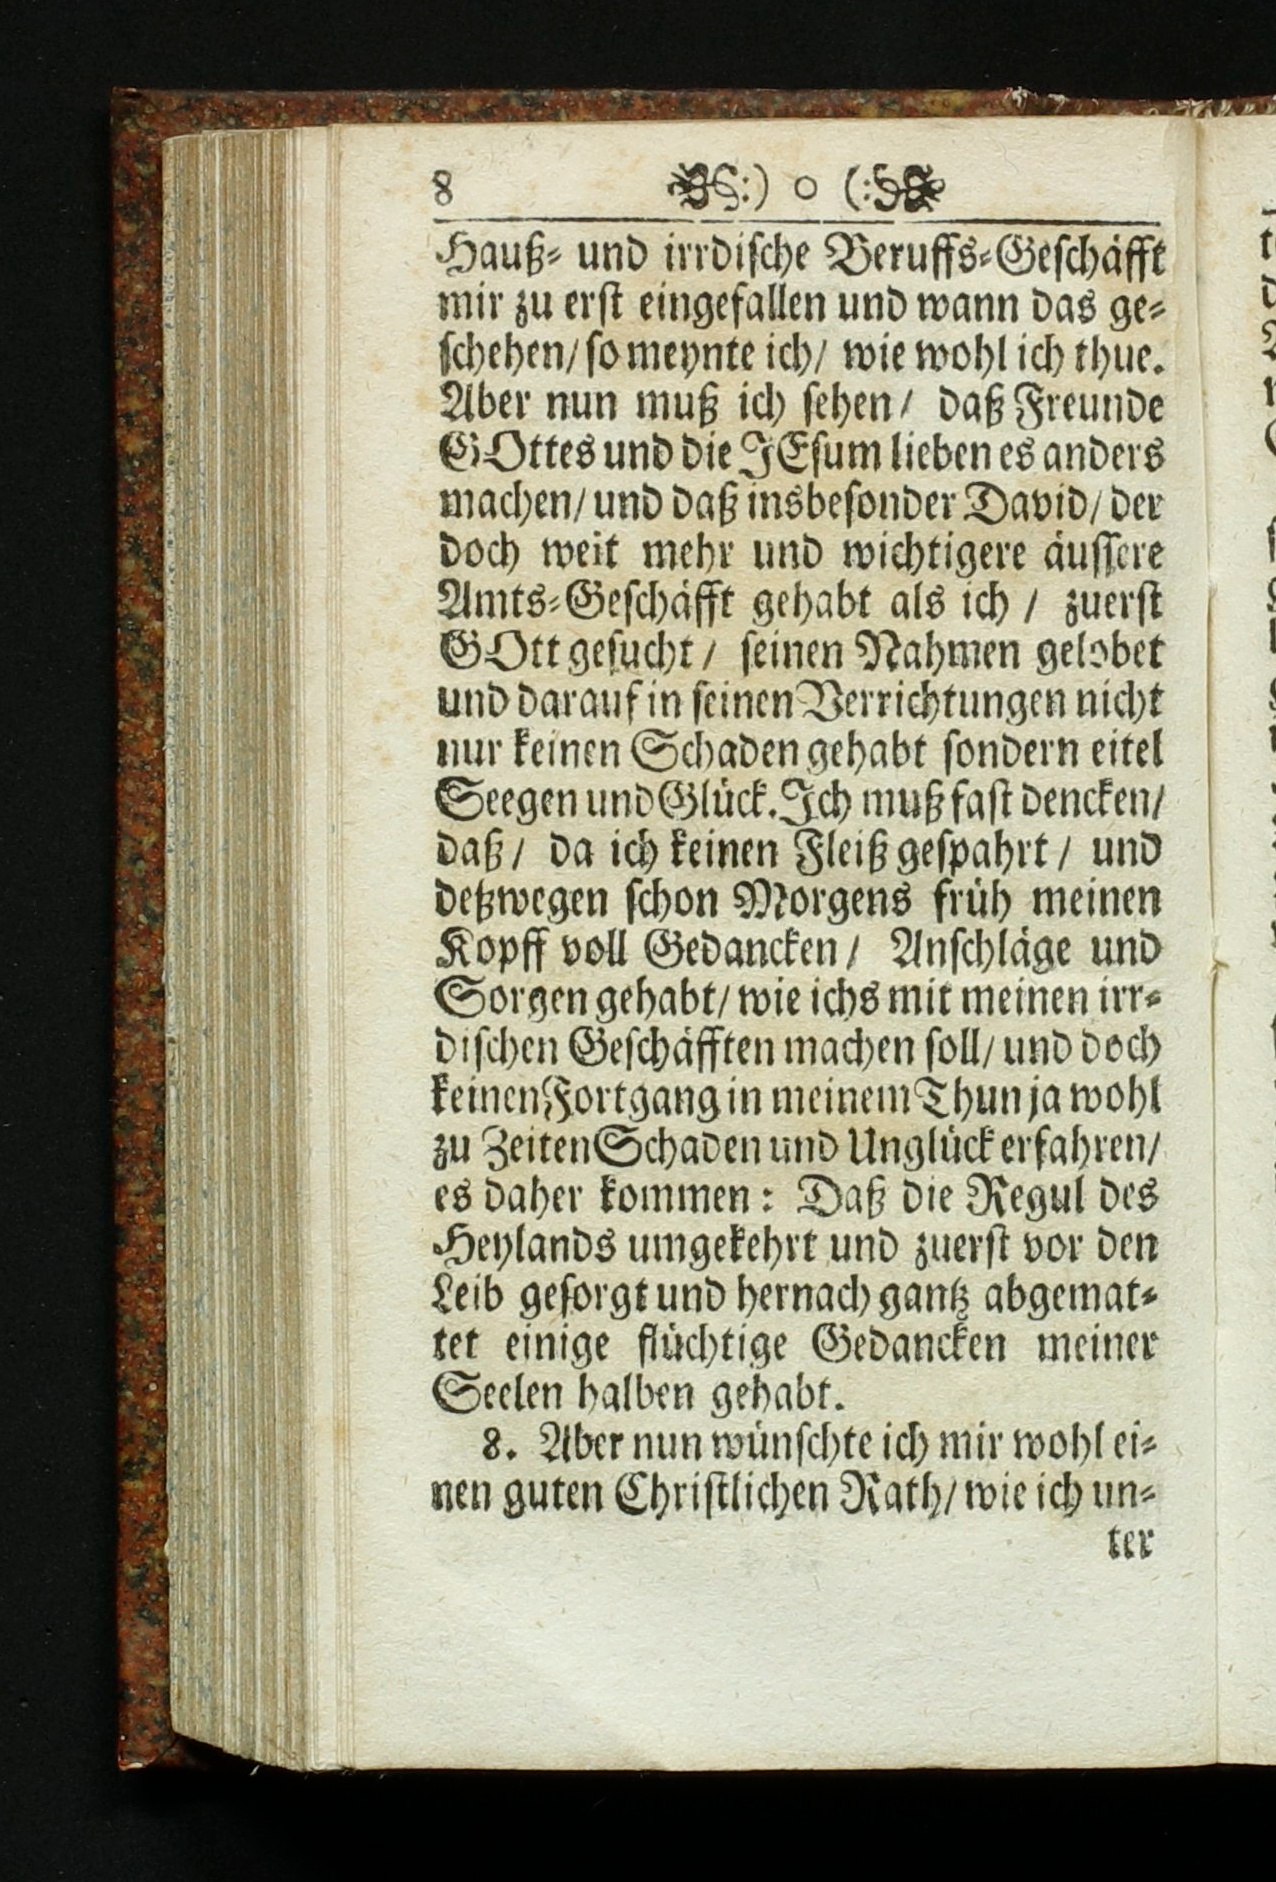 8 :) o (:
Hauß- und irrdiſche Beruffs-Geſchäfft
mir zu erſt eingefallen und wann das ge-
ſchehen/ ſo meynte ich/ wie wohl ich thue.
Aber nun muß ich ſehen/ daß Freunde
GOttes und die JEſum lieben es anders
machen/ und daß insbeſonder David/ der
doch weit mehr und wichtigere äuſſere
Amts-Geſchäfft gehabt als ich / zuerſt
GOtt geſucht/ ſeinen Nahmen gelobet
und darauf in ſeinen Verrichtungen nicht
nur keinen Schaden gehabt ſondern eitel
Seegen und Glück. Ich muß faſt dencken/
daß/ da ich keinen Fleiß geſpahrt/ und
deßwegen ſchon Morgens früh meinen
Kopff voll Gedancken/ Anſchläge und
Sorgen gehabt/ wie ichs mit meinen irr-
diſchen Geſchäfften machen ſoll/ und doch
keinen Fortgang in meinem Thun ja wohl
zu Zeiten Schaden und Unglück erfahren/
es daher kommen: Daß die Regul des
Heylands umgekehrt und zuerſt vor den
Leib geſorgt und hernach gantz abgemat-
tet einige flüchtige Gedancken meiner
Seelen halben gehabt.
8. Aber nun wünſchte ich mir wohl ei-
nen guten Chriſtlichen Rath/ wie ich un-
ter